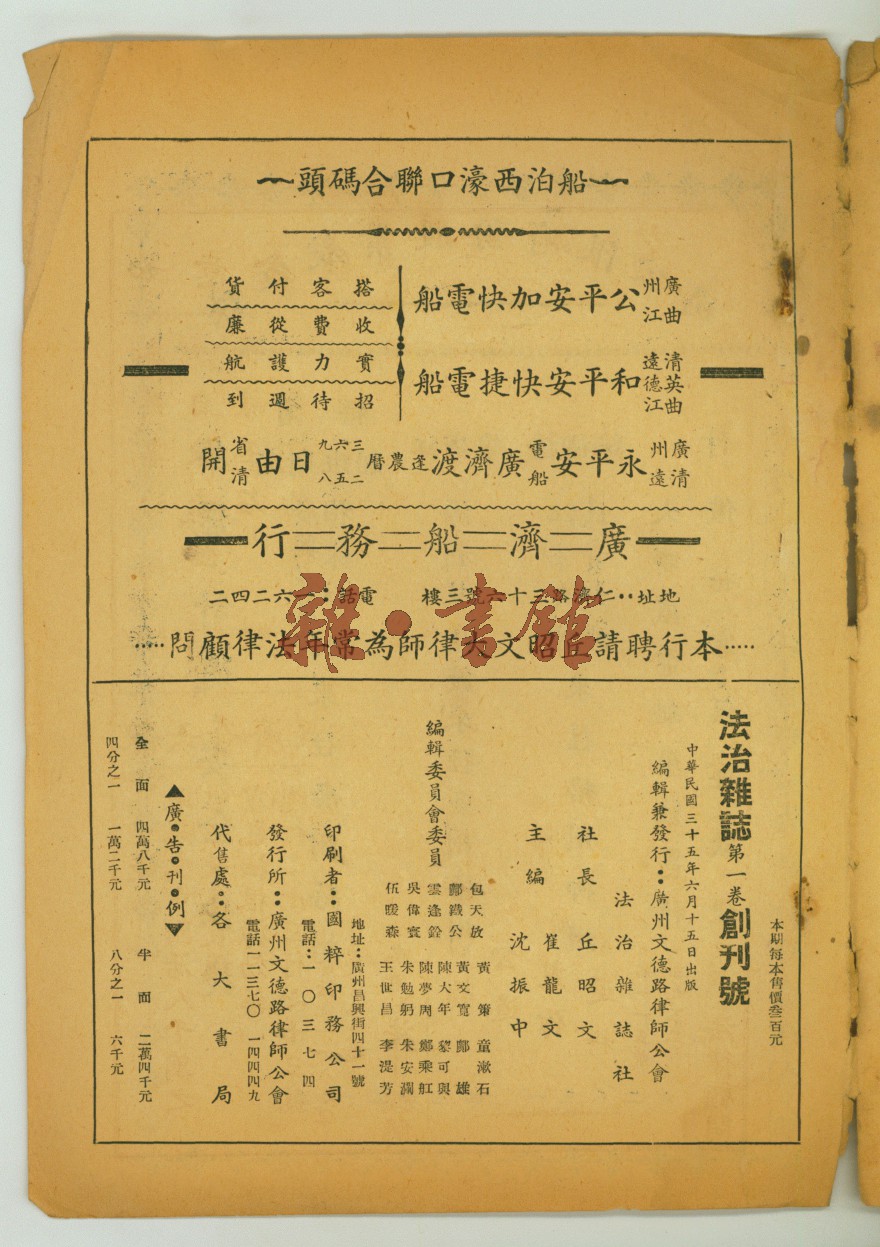 船泊西濠口聯合碼頭
廣州
曲江
公平安加快電船
清遠
英德
曲江
和平安快捷電船
搭客付貨
收費從廉
實力護航
招待週到
廣州
清遠
永平安電船廣濟渡逢農曆
三六九
二五八
日由省清開
廣濟船務行
地址：仁濟路三十六號三樓
電話：一六二四二
本行聘請丘昭文大律師為常年法律顧問
本期每本售價叁百元
法治雜誌第一卷創刊號
中華民國三十五年六月十五日出版
編輯兼發行：廣州文德路律師公會
法治雜誌社
社長 丘昭文
主編 崔龍文
沈振中
編輯委員會委員
包天放 黃策 童漱石
鄺鐵公 黃文寬 鄺雄
雲逢銓 陳大年 黎可與
吳偉寰 陳夢周 鄭乘舡
伍暖森 朱勉躬 朱安瀾
王世昌 李湜芳
印刷者：國粹印務公司
地址：廣州昌興街四十一號
電話：一〇三七四
發行所：廣州文德路律師公會
電話一一三七〇 一四四四九
代售處：各大書局
▲廣告刊例▼
全面 四萬八千元 半面 二萬四千元
四分之一 一萬二千元 八分之一 六千元
雜·書館